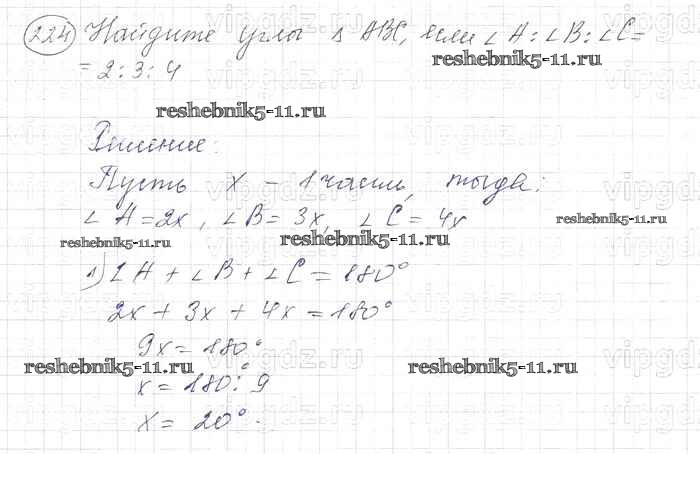 224 Найдите углы Δ ABC, если ∠A:∠B:∠C=
=2:3:4
reshebnik5-11.ru
reshebnik5-11.ru
Решение:
Пусть x – 1 часть, тогда:
∠A=2x, ∠B=3x, ∠C=4x
reshebnik5-11.ru
reshebnik5-11.ru
reshebnik5-11.ru
1) ∠A+∠B+∠C=180°
2x+3x+4x=180°
9x=180°
reshebnik5-11.ru
reshebnik5-11.ru
x=180°:9
x=20°.